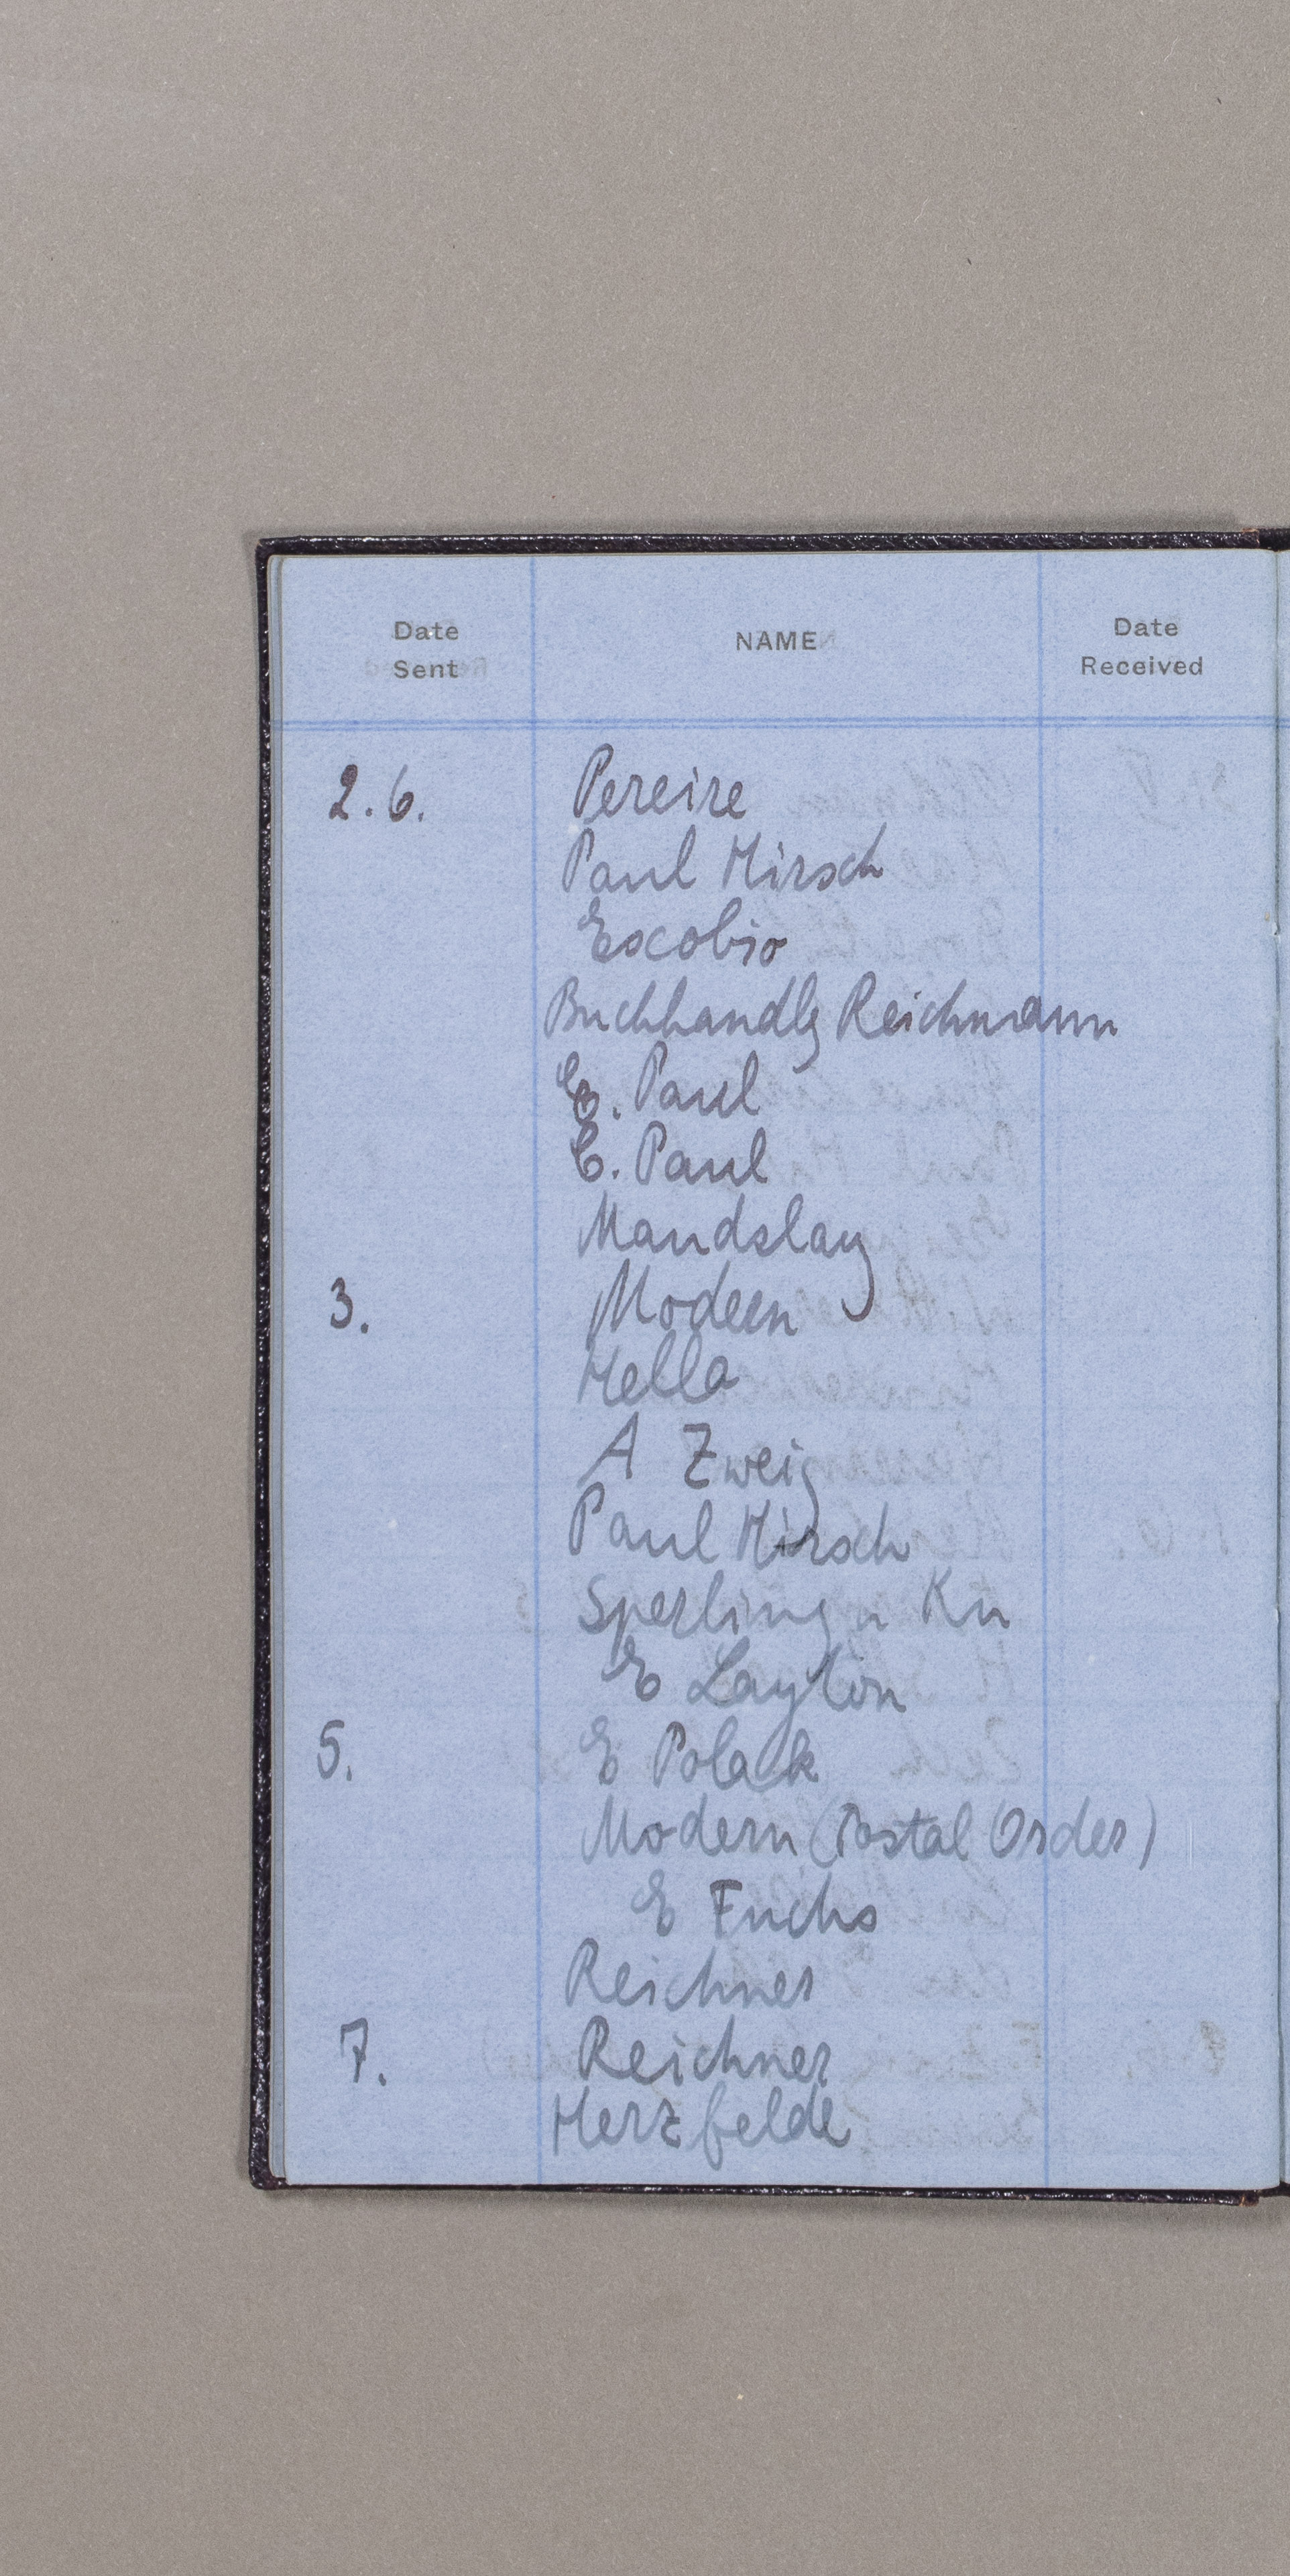 Date Sent NAME Date Received
2.6. Pereire
Paul Hirsch
Escobio
Buchhandlg Reichmann
E. Paul
C. Paul
Maudslay
3. Modern
Hella
A Zweig
Paul Hirsch
Sperling u Ku
E Layton
5. E Polack
Modern (Postal Order)
E Fuchs
Reichner
7. Reichner
Herzfelde